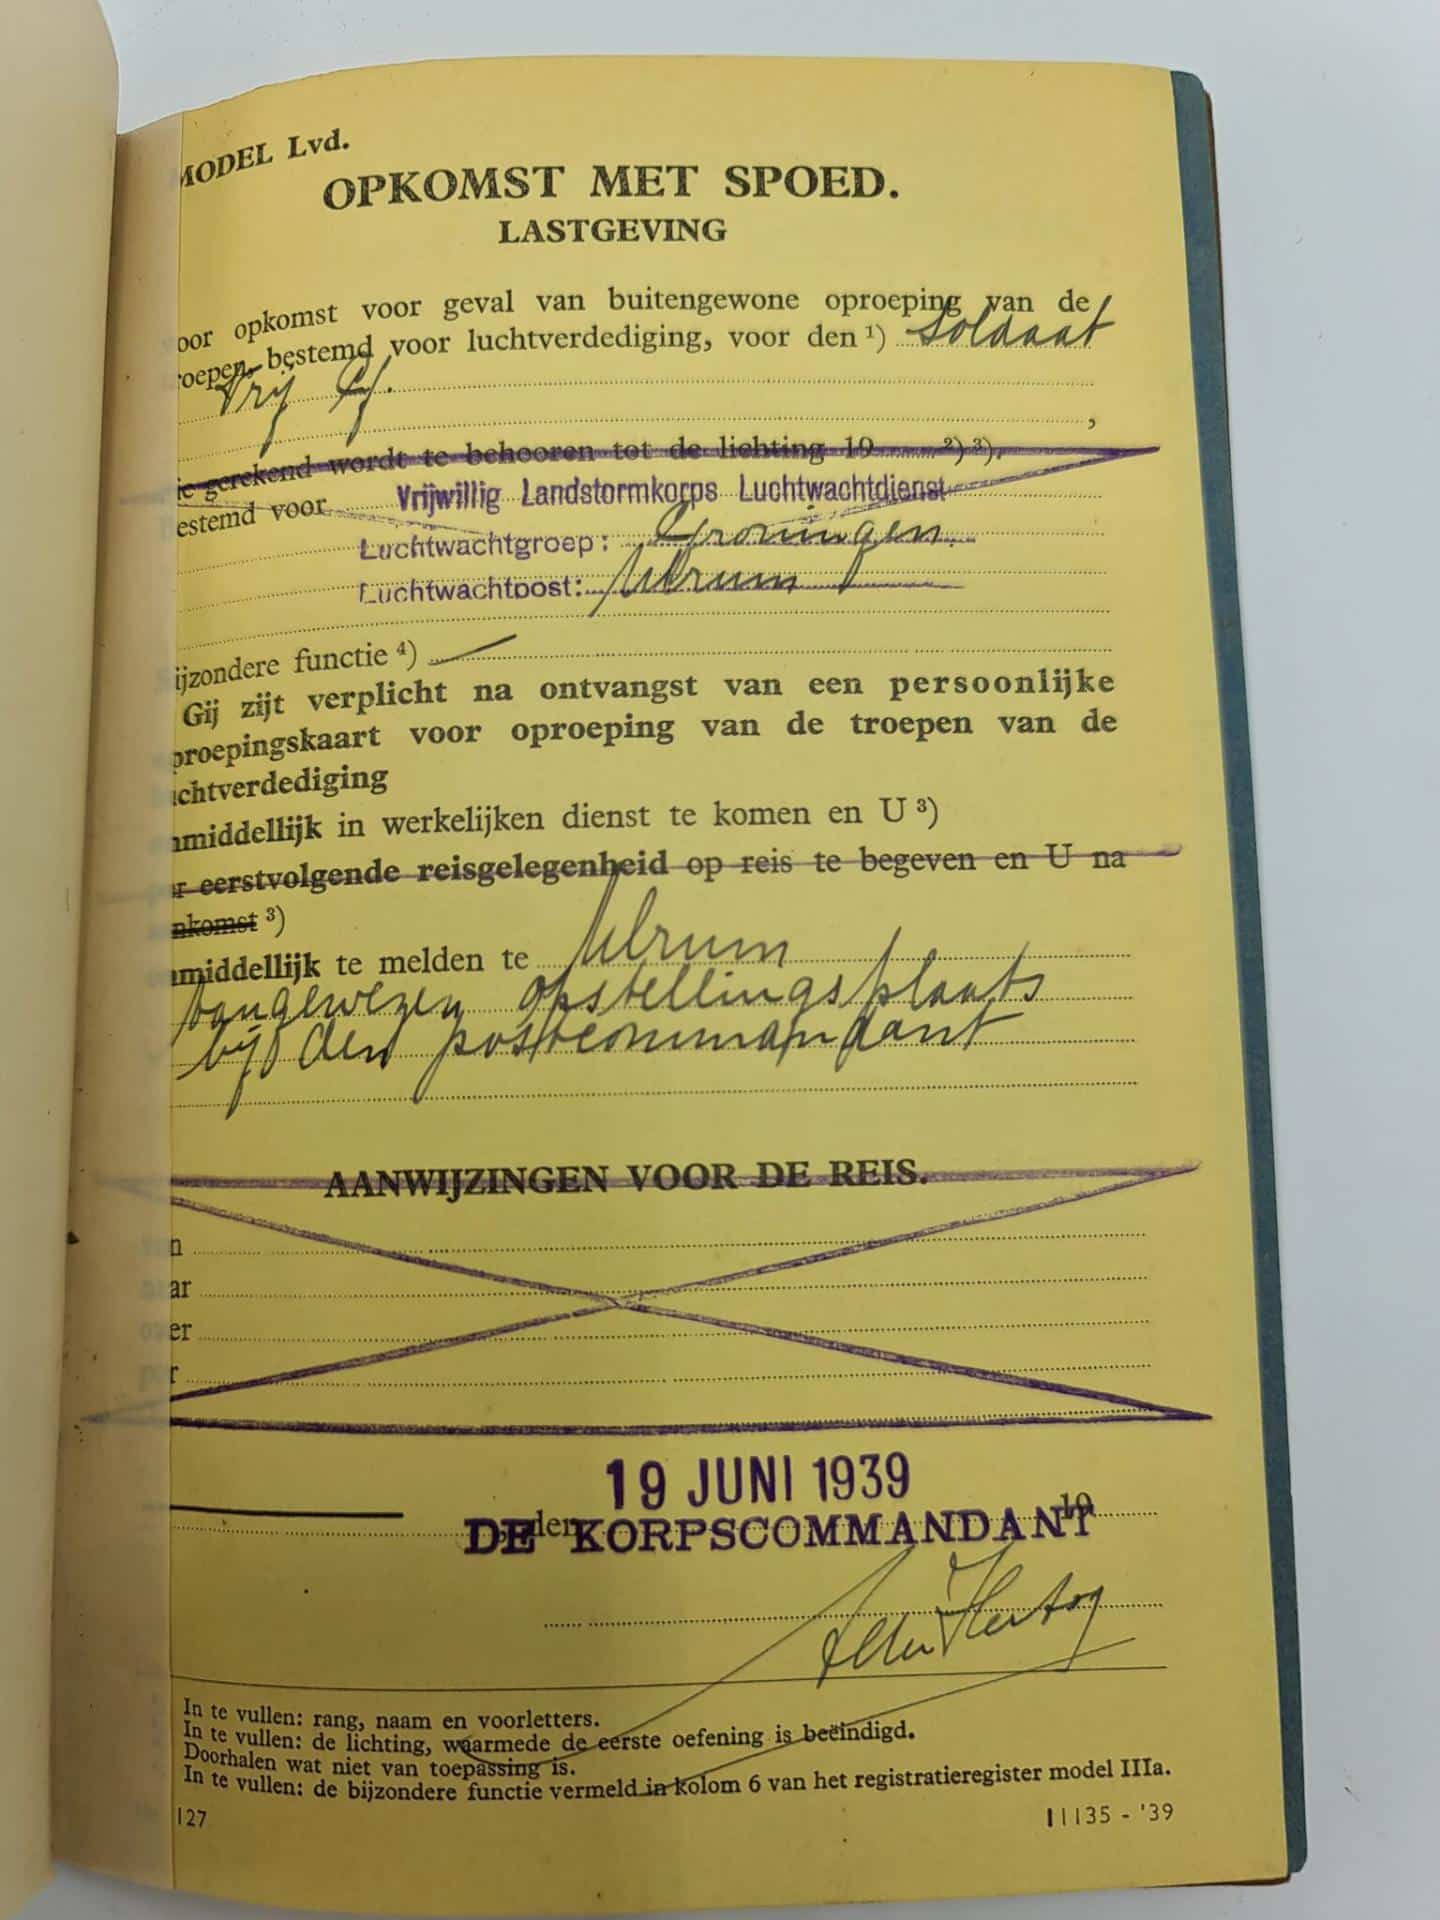 MODEL Lvd.
OPKOMST MET SPOED.
LASTGEVING
voor opkomst voor geval van buitengewone oproeping van de
roepen, bestemd voor luchtverdediging, voor den ¹) soldaat
Vrij
,
ie gerekend wordt te behooren tot de lichting 19 ²) ³),
bestemd voor Vrijwillig Landstormkorps Luchtwachtdienst
Luchtwachtgroep: Groningen.
Luchtwachtpost: Ulrum
ijzondere functie ⁴)
Gij zijt verplicht na ontvangst van een persoonlijke
proepingskaart voor oproeping van de troepen van de
uchtverdediging
nmiddellijk in werkelijken dienst te komen en U ³)
er eerstvolgende reisgelegenheid op reis te begeven en U na
nkomst ³)
nmiddellijk te melden te Ulrum
aangewezen opstellingsplaats
bij den postcommandant
AANWIJZINGEN VOOR DE REIS.
van
naar
over
per
19 JUNI 1939
den 19
DE KORPSCOMMANDANT
In te vullen: rang, naam en voorletters.
In te vullen: de lichting, waarmede de eerste oefening is beëindigd.
Doorhalen wat niet van toepassing is.
In te vullen: de bijzondere functie vermeld in kolom 6 van het registratieregister model IIIa.
127
11135 - '39